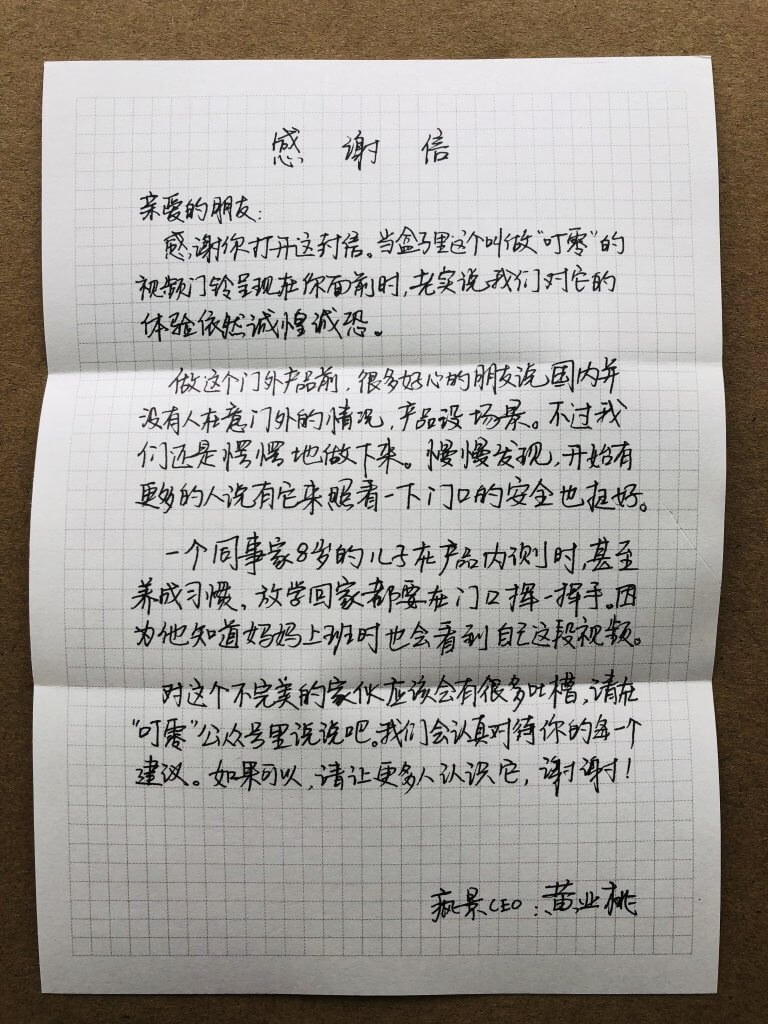 感谢信
亲爱的朋友:
感谢你打开这封信。当盒子里这个叫做“叮零”的
视频门铃呈现在你面前时,老实说我们对它的
体验依然诚惶诚恐。
做这个门外产品前,很多好心的朋友说国内并
没有人在意门外的情况,产品没场景。不过我
们还是愣愣地做下来。慢慢发现,开始有
更多的人说有它来照看一下门口的安全也挺好。
一个同事家8岁的儿子在产品内测时,甚至
养成习惯,放学回家都要在门口挥一挥手。因
为他知道妈妈上班时也会看到自己这段视频。
对这个不完美的家伙应该会有很多吐槽,请在
“叮零”公众号里说说吧。我们会认真对待你的每一个
建议。如果可以,请让更多人认识它,谢谢!
疯景CEO:黄业桃